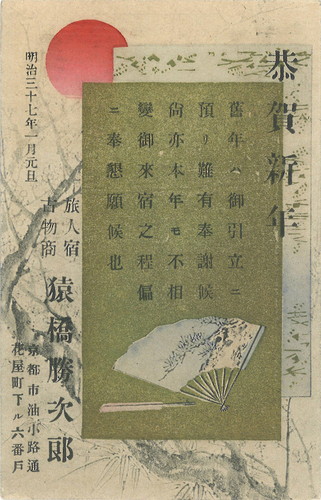 恭賀新年
舊年ハ御引立ニ
預リ難有奉謝候
尙亦本年モ不相
變御來宿之程偏
ニ奉懇願候也
明治三十七年一月元旦
旅人宿
古物商
猿橋勝次郎
京都市油小路通
花屋町下ル六番戶